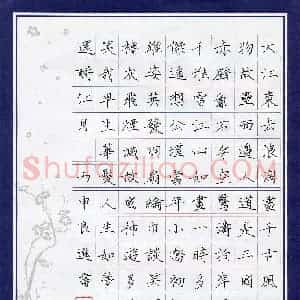 大江東去浪淘盡千古風
物故壘西邊人道是三國
赤壁亂石穿空驚濤拍岸
千堆雪江山如畫一時多
傑遙想公瑾當年小喬初
雄姿英發羽扇綸巾談笑
櫓灰飛煙滅故國神遊多
笑我早生華髮人生如夢
還酹江月
Shufaziliao.com